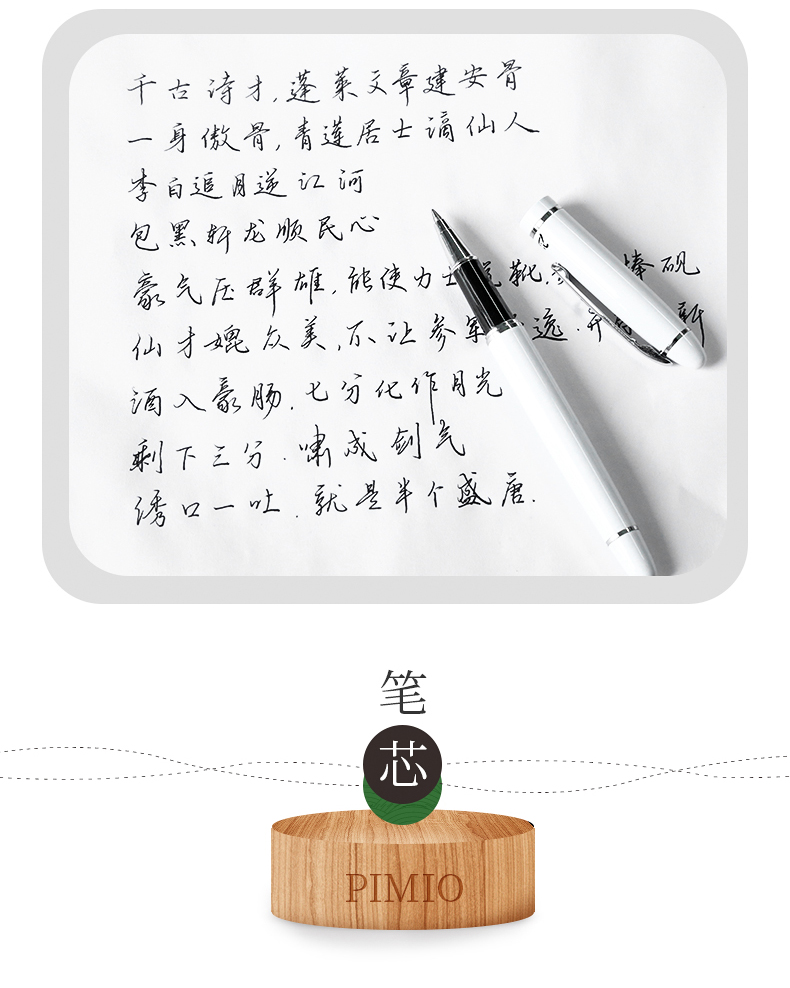 千古诗才,蓬莱文章建安骨
一身傲骨,青莲居士谪仙人
李白追月逆江河
包黑轩龙顺民心
豪气压群雄,能使力士脱靴, 捧砚
仙才媲众美,不让参军 逸.开府 新
酒入豪肠.七分化作月光
剩下三分.啸成剑气
绣口一吐.就是半个盛唐.
笔
芯
PIMIO